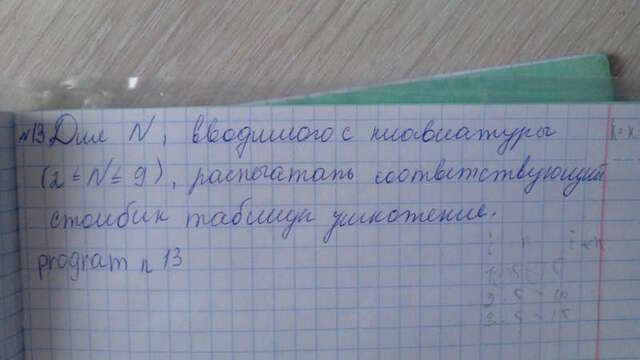 №13 Для N, вводимого с клавиатуры
(2 ≤ N ≤ 9), распечатать соответствующий
столбик таблицы умножение.
program n 13
i n i*n